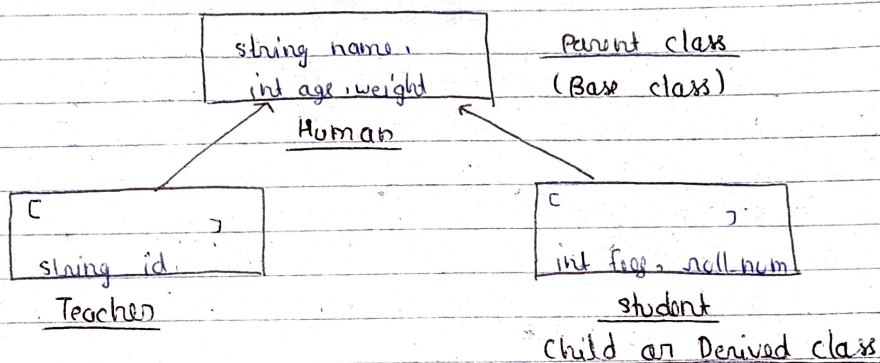 string name,
int age, weight
Human
Parent class
(Base class)
[ ]
string id
Teacher
[ ]
int fees, roll_num
student
Child or Derived class